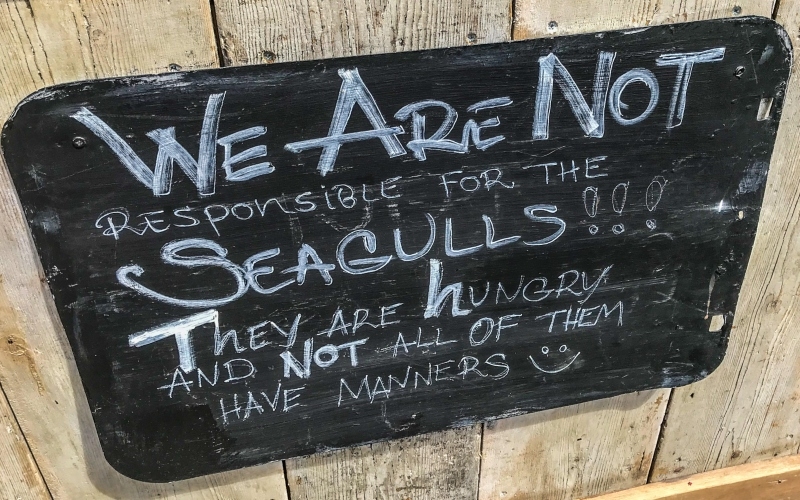 We Are Not
RESPONSIBLE FOR THE
SEAGULLS!!!
They ARE hUNGRY
AND NOT ALL OF THEM
HAVE MANNERS